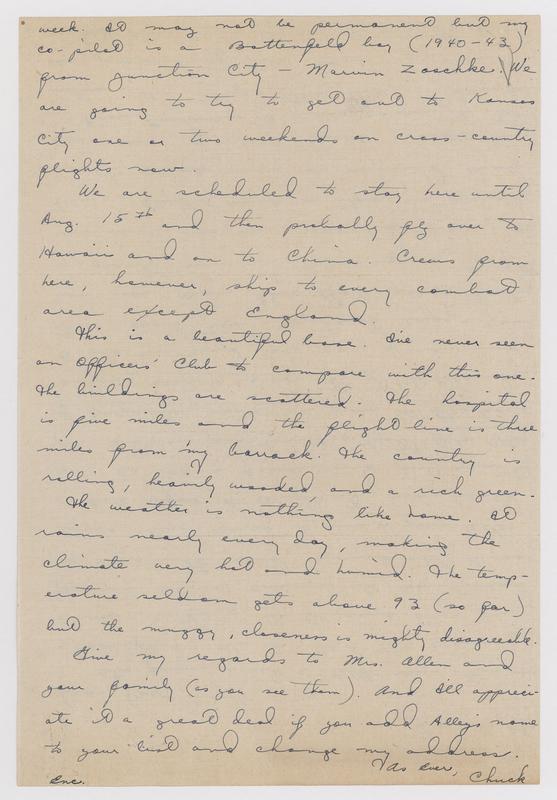 week. It may not be permanent but my
co-pilot is a Battenfeld boy (1940-43)
from Junction City - Marvin Zoschke. We
are going to try to get out to Kansas
City one or two weekends on cross-country
flights now.
We are scheduled to stay here until
Aug. 15th and then probably fly over to
Hawaii and on to China. Crews from
here, however, ship to every combat
area except England.
This is a beautiful base. I've never seen
an Officers' Club to compare with this one.
The buildings are scattered. The hospital
is five miles and the flight line is three
miles from my barrack. The country is
rolling, heavily wooded, and a rich green.
The weather is nothing like home. It
rains nearly every day, making the
climate very hot and humid. The temp-
erature seldom gets above 93 (so far)
but the muggy, closeness is mighty disagreeable.
Give my regards to Mrs. Allen and
your family (as you see them). And I'll appreci-
ate it a great deal if you add Alley's name
to your list and change my address.
As ever, Chuck
Enc.